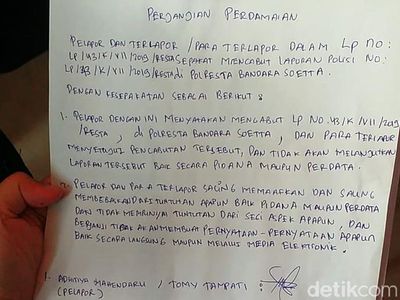 PERJANJIAN PERDAMAIAN
PELAPOR DAN TERLAPOR / PARA TERLAPOR DALAM LP NO:
LP/43/K/VII/2019/RESTA SEPAKAT MENCABUT LAPORAN POLISI NO:
LP/43/K/VII/2019/RESTA di POLRESTA BANDARA SOETTA.
DENGAN KESEPAKATAN SEBAGAI BERIKUT :
1. PELAPOR DENGAN INI MENYATAKAN MENCABUT LP NO.43/K/VII/2019
/RESTA, di POLRESTA BANDARA SOETTA, DAN PARA TERLAPOR
MENYETUJUI PENCABUTAN TERSEBUT, DAN TIDAK AKAN MELANJUTKAN
LAPORAN TERSEBUT BAIK SECARA PIDANA MAUPUN PERDATA.
2. PELAPOR DAN PARA TERLAPOR SALING MEMAAFKAN DAN SALING
MEMBEBASKAN DARI TUNTUTAN APAPUN BAIK PIDANA MAUPUN PERDATA
DAN TIDAK MEMPUNYAI TUNTUTAN DARI SEGI ASPEK APAPUN, DAN
BERJANJI TIDAK AKAN MEMBUAT PERNYATAAN-PERNYATAAN APAPUN
BAIK SECARA LANGSUNG MAUPUN MELALUI MEDIA ELEKTRONIK.
1. ADHITYA MAHENDARU, TOMY TAMPATI :
(PELAPOR)
detikcom